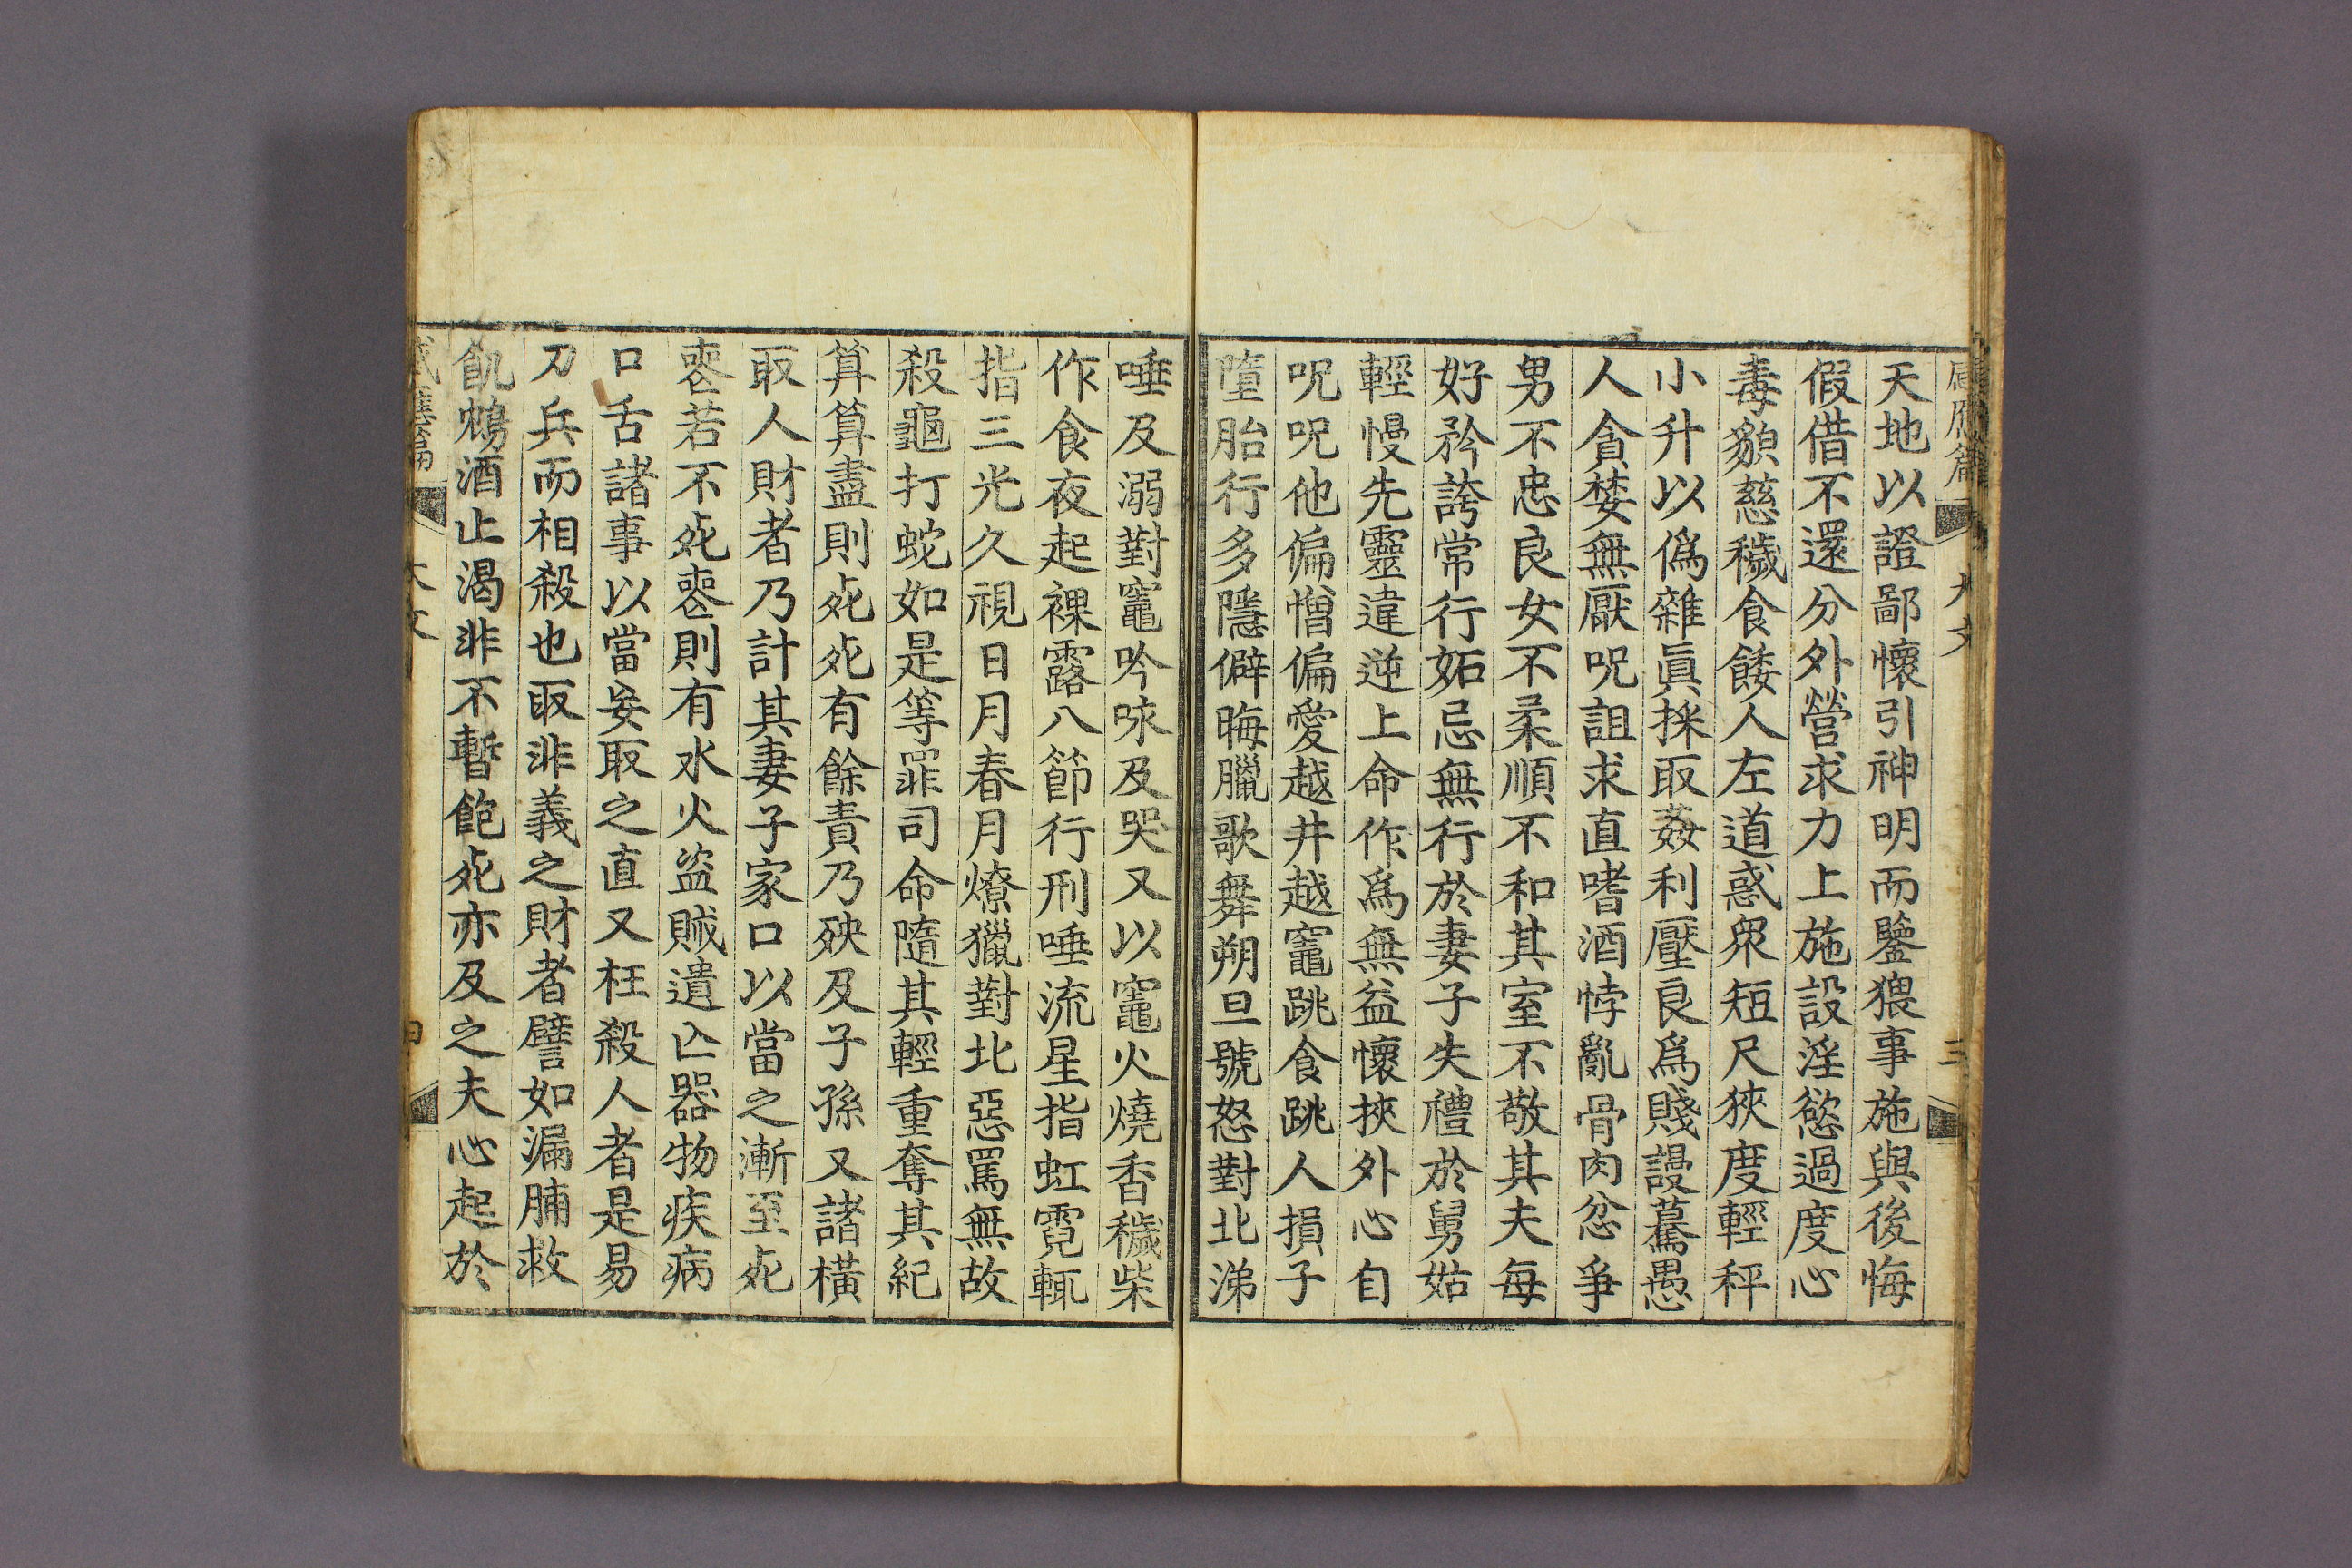 天地以證鄙懷引神明而鑒猥事施與後悔
假借不還分外營求力上施設淫慾過度心
毒貌慈穢食餧人左道惑衆短尺狹度輕秤
小升以僞雜眞採取姦利壓良爲賤謾驀愚
人貪婪無厭呪詛求直嗜酒悖亂骨肉忿爭
男不忠良女不柔順不和其室不敬其夫每
好矜誇常行妬忌無行於妻子失禮於舅姑
輕慢先靈違逆上命作爲無益懷挾外心自
呪呪他偏憎偏愛越井越竈跳食跳人損子
墮胎行多隱僻晦臘歌舞朔旦號怒對北涕
唾及溺對竈吟咏及哭又以竈火燒香穢柴
作食夜起裸露八節行刑唾流星指虹霓輒
指三光久視日月春月燎獵對北惡罵無故
殺龜打蛇如是等罪司命隨其輕重奪其紀
算算盡則死死有餘責乃殃及子孫又諸橫
取人財者乃計其妻子家口以當之漸至死
喪若不死喪則有水火盜賊遺亾器物疾病
口舌諸事以當妄取之直又枉殺人者是易
刀兵而相殺也取非義之財者譬如漏脯救
飢鴆酒止渴非不暫飽死亦及之夫心起於
感應篇 大文